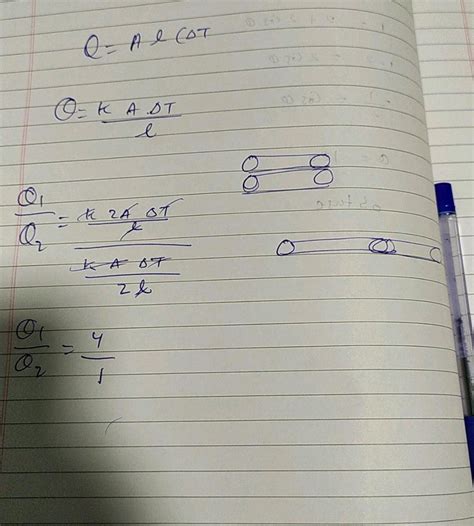 Q = A l C ΔT
Q = K A ΔT / l
Q1 / Q2 = (K 2A ΔT / l) / (K A ΔT / 2l)
Q1 / Q2 = 4 / 1